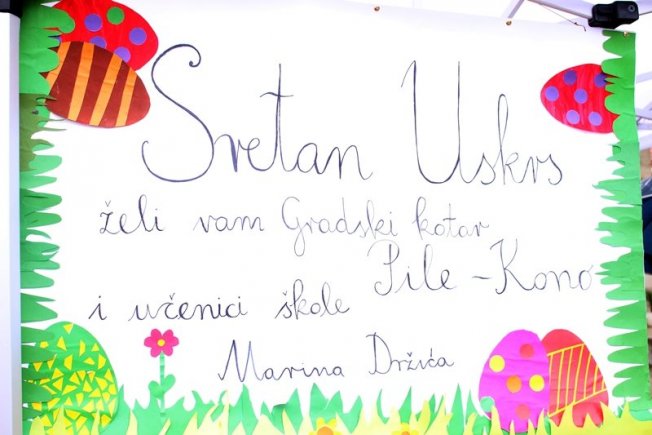 Sretan Uskrs
želi vam Gradski kotar
Pile - Kono
i učenici škole
Marina Držića